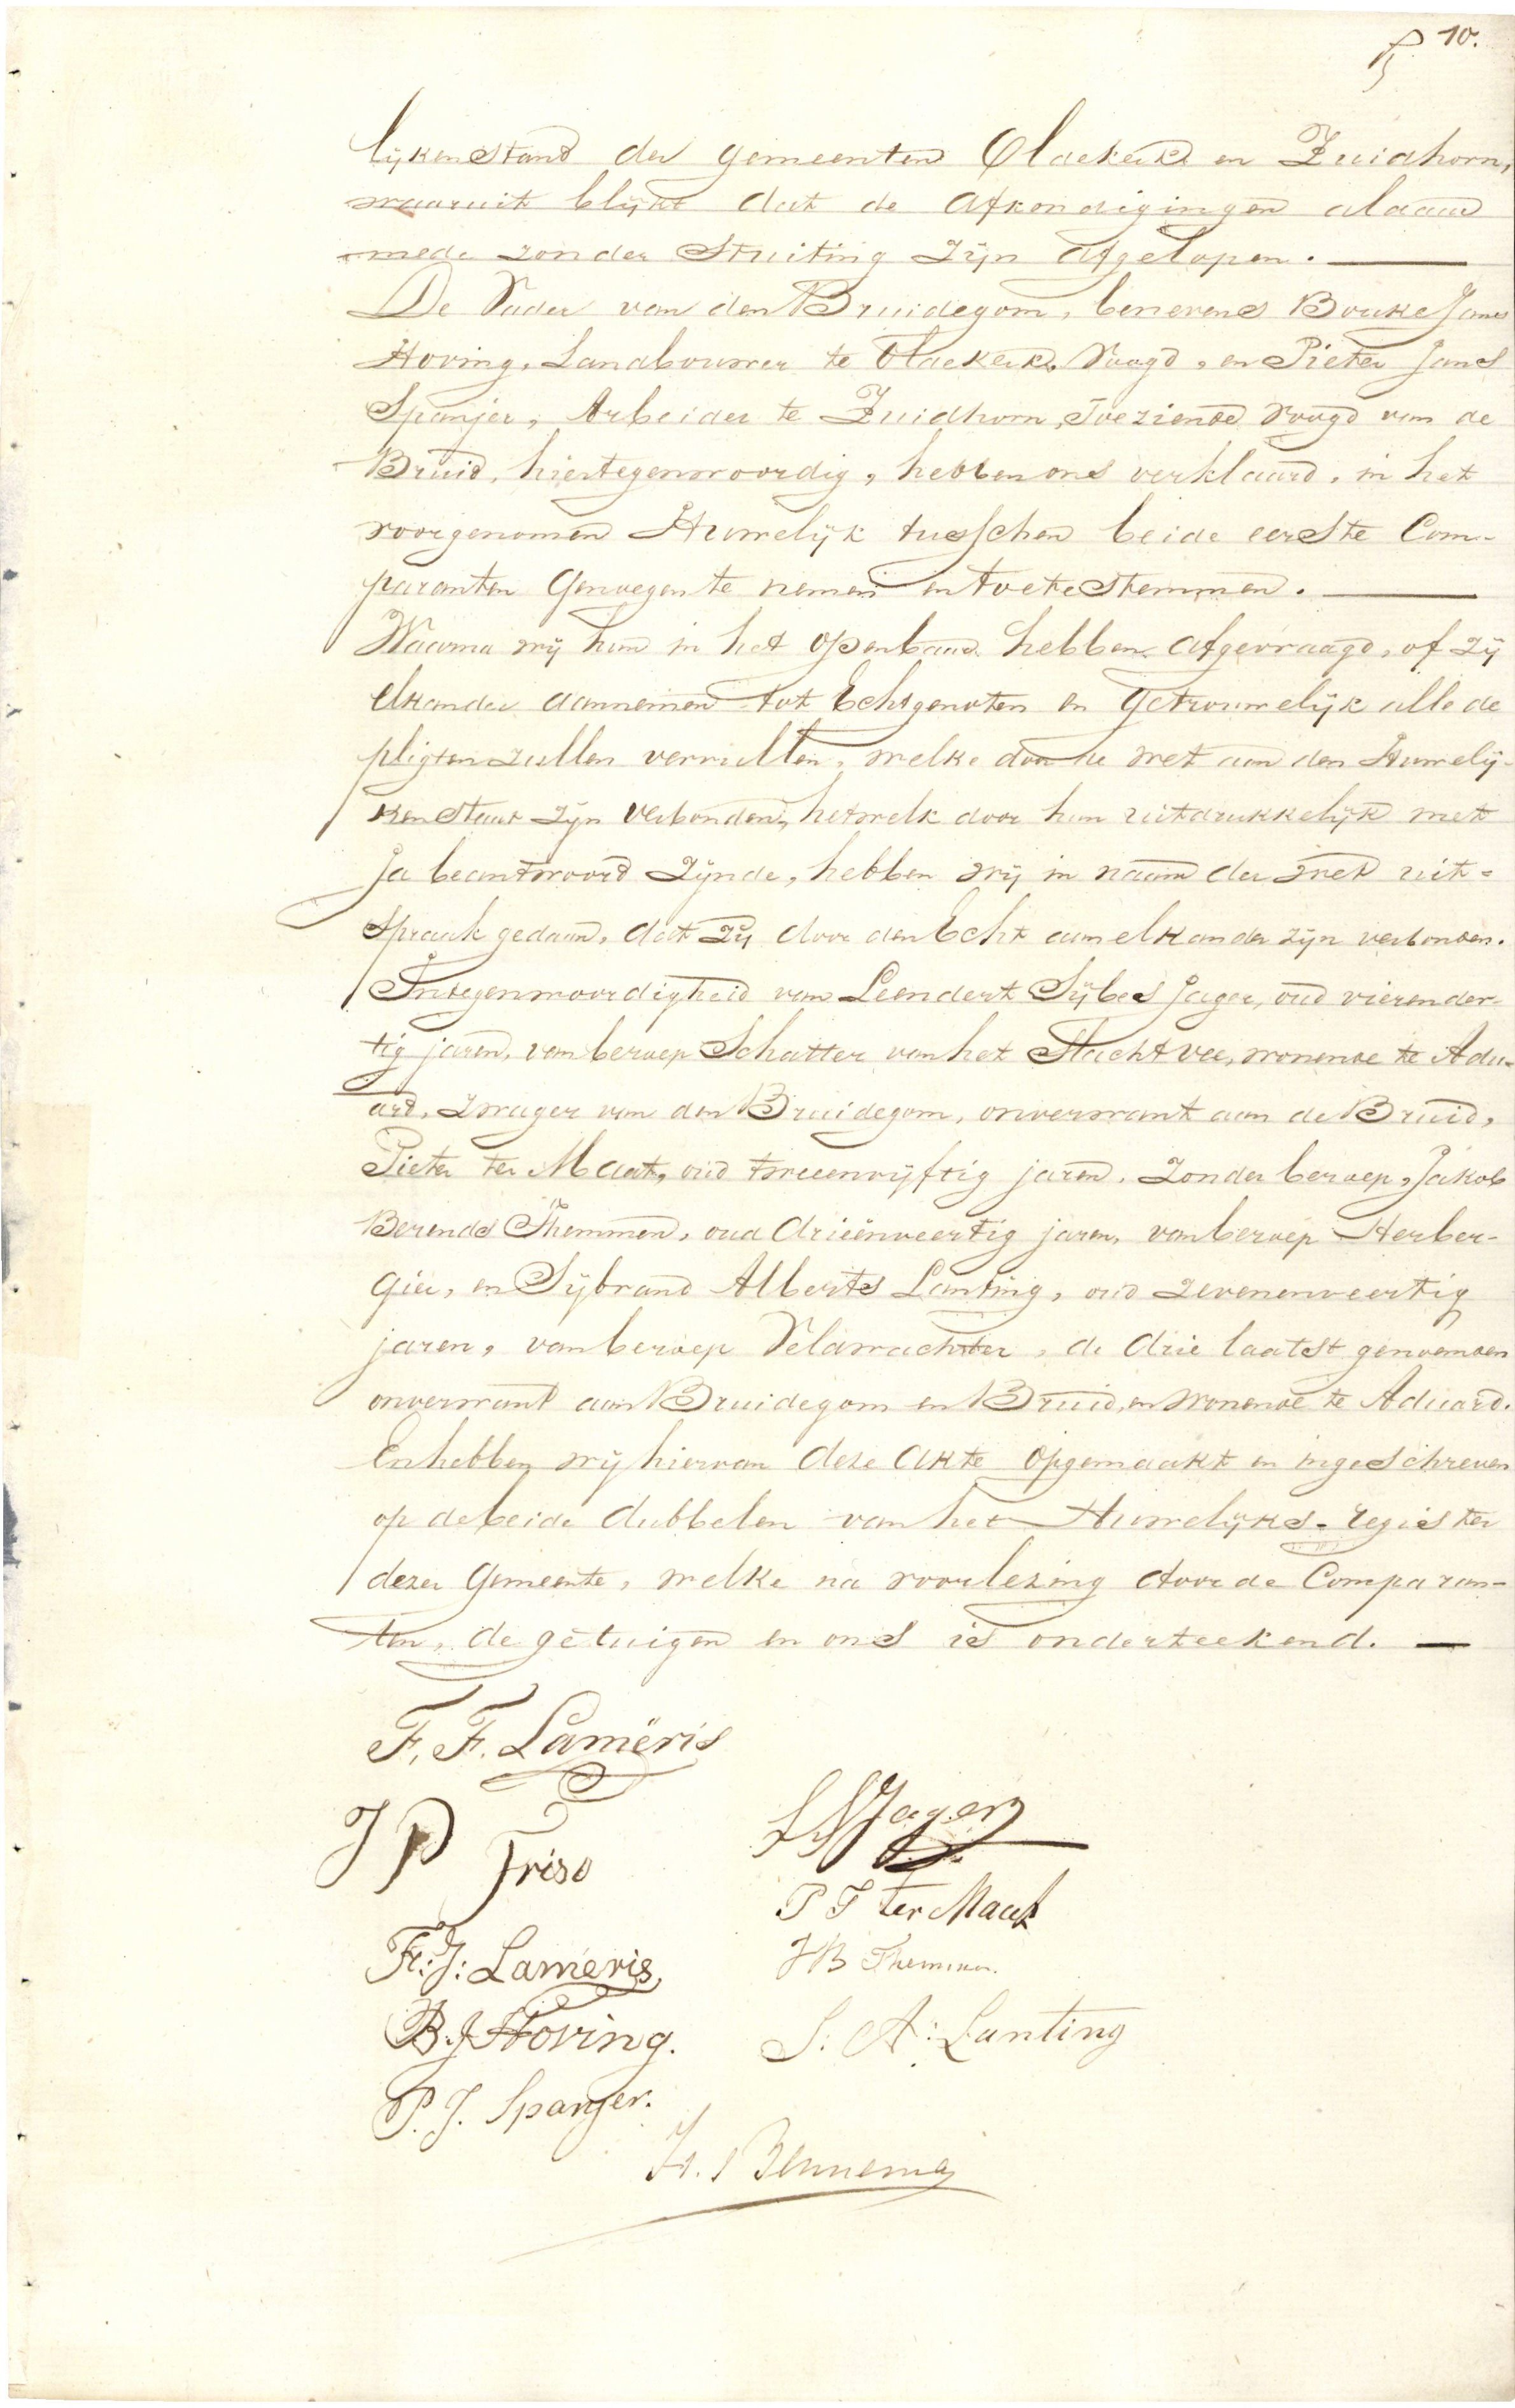 10.
lijkenstand der gemeenten Oldekerk en Zuidhorn,
waaruit blijkt dat de afkondigingen aldaar
mede zonder Stuiting zijn afgelopen.
De Vader van den Bruidegom, benevens Bouke Jans
Hoving, Landbouwer te Oldekerk, Voogd, en Pieter Jans
Spanjer, Arbeider te Zuidhorn, Toeziende Voogd van de
Bruid, hiertegenwoordig, hebben ons verklaard, in het
voorgenomen Huwelijk tusschen beide eerste Com-
paranten Genoegen te nemen en toetestemmen.
Waarna wij hun in het openbaar hebben afgevraagd, of zij
elkander aannemen tot Echtgenoten en getrouwelijk alle de
pligten zullen vervullen, welke door de wet aan den Huwelij-
ken staat zijn verbonden, hetwelk door hun uitdrukkelijk met
Ja beantwoord zijnde, hebben wij in naam der wet uit-
spraak gedaan, dat zij door den Echt aan elkander zijn verbonden.
In tegenwoordigheid van Leendert Sijbes Jager, oud vierender-
tig jaren, van beroep Schatter van het Slachtvee, wonende te Adu-
ard, Zwager van den Bruidegom, onverwant aan de Bruid,
Pieter ter Maat, oud tweeenvijftig jaren, zonder beroep, Jakob
Berends Themmen, oud drieënveertig jaren, van beroep Herber-
gier, en Sijbrand Alberts Lanting, oud zevenenveertig
jaren, van beroep Veldwachter, de drie laatst genoemden
onverwant aan Bruidegom en Bruid, en wonende te Aduard.
En hebben wij hiervan deze Akte opgemaakt en ingeschreven
op de beide dubbelen van het Huwelijks-register
dezer Gemeente, welke na voorlezing door de Comparan-
ten, de getuigen en ons is onderteekend.
F. F. Lamëris
J P Friso
L S Jager
P J ter Maat
F. J: Lameris
J B Themmen.
B. J Hoving.
S: A: Lanting
P. J. Spanjer.
H. Bennema